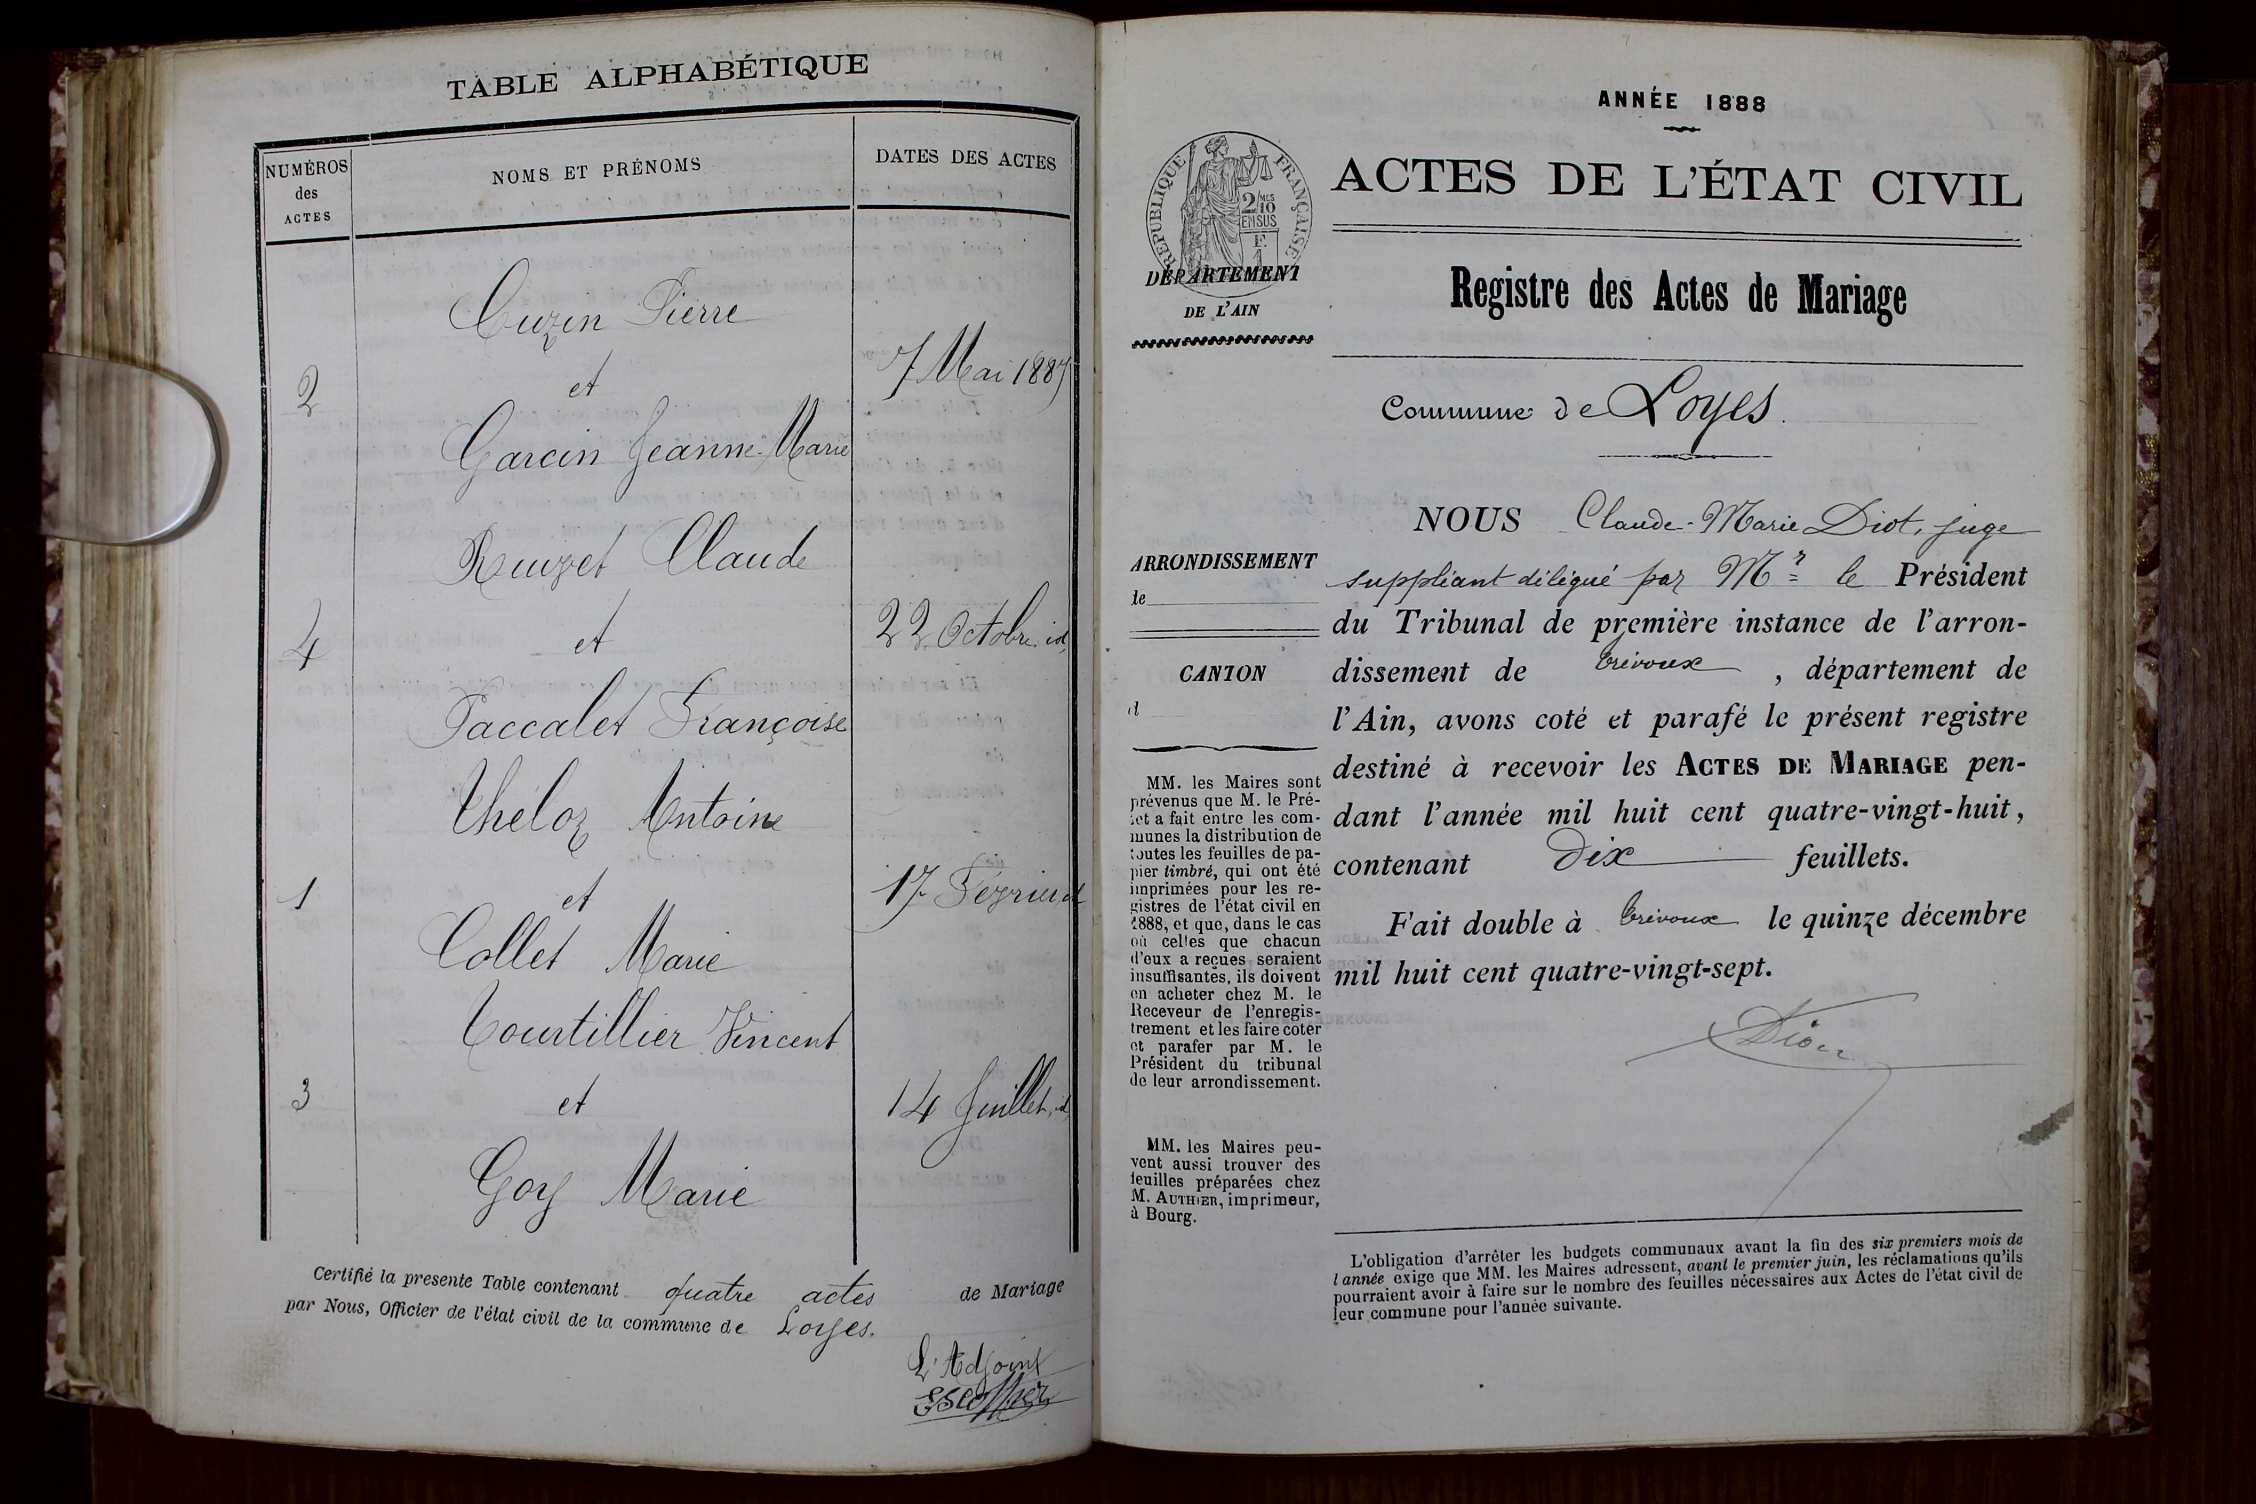 TABLE ALPHABÉTIQUE
NUMÉROS
des
ACTES
NOMS ET PRÉNOMS
DATES DES ACTES
Cuzin Pierre
2
et
7 Mai 1887
Garcin Jeanne-Marie
Claude
4
et
22 Octobre id
Paccalet Françoise
Théloz Antoine
1
et
17 Février id
Collet Marie
Tourtillier Vincent
3
et
14 Juillet id
Goy Marie
Certifié la presente Table contenant quatre actes de Mariage
par Nous, Officier de l'état civil de la commune de Loyes.
L'Adjoint
Escoffier
ANNÉE 1888
RÉPUBLIQUE FRANÇAISE
2 MES
10
EN SUS
DÉPARTEMENT
DE L'AIN
ACTES DE L'ÉTAT CIVIL
Registre des Actes de Mariage
Commune de Loyes.
ARRONDISSEMENT
de
CANTON
d
MM. les Maires sont
prévenus que M. le Pré-
fet a fait entre les com-
munes la distribution de
toutes les feuilles de pa-
pier timbré, qui ont été
imprimées pour les re-
gistres de l'état civil en
1888, et que, dans le cas
où celles que chacun
d'eux a reçues seraient
insuffisantes, ils doivent
en acheter chez M. le
Receveur de l'enregis-
trement et les faire coter
et parafer par M. le
Président du tribunal
de leur arrondissement.
MM. les Maires peu-
vent aussi trouver des
feuilles préparées chez
M. AUTHIER, imprimeur,
à Bourg.
NOUS Claude-Marie Diot, juge
suppléant délégué par Mr le Président
du Tribunal de première instance de l'arron-
dissement de Trévoux, département de
l'Ain, avons coté et parafé le présent registre
destiné à recevoir les ACTES DE MARIAGE pen-
dant l'année mil huit cent quatre-vingt-huit,
contenant Dix feuillets.
Fait double à Trévoux le quinze décembre
mil huit cent quatre-vingt-sept.
Diot
L'obligation d'arrêter les budgets communaux avant la fin des six premiers mois de
l'année exige que MM. les Maires adressent, avant le premier juin, les réclamations qu'ils
pourraient avoir à faire sur le nombre des feuilles nécessaires aux Actes de l'état civil de
leur commune pour l'année suivante.